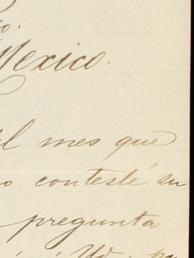 o.
Mexico.
el mes que
o contesté su
pregunta
Ud.